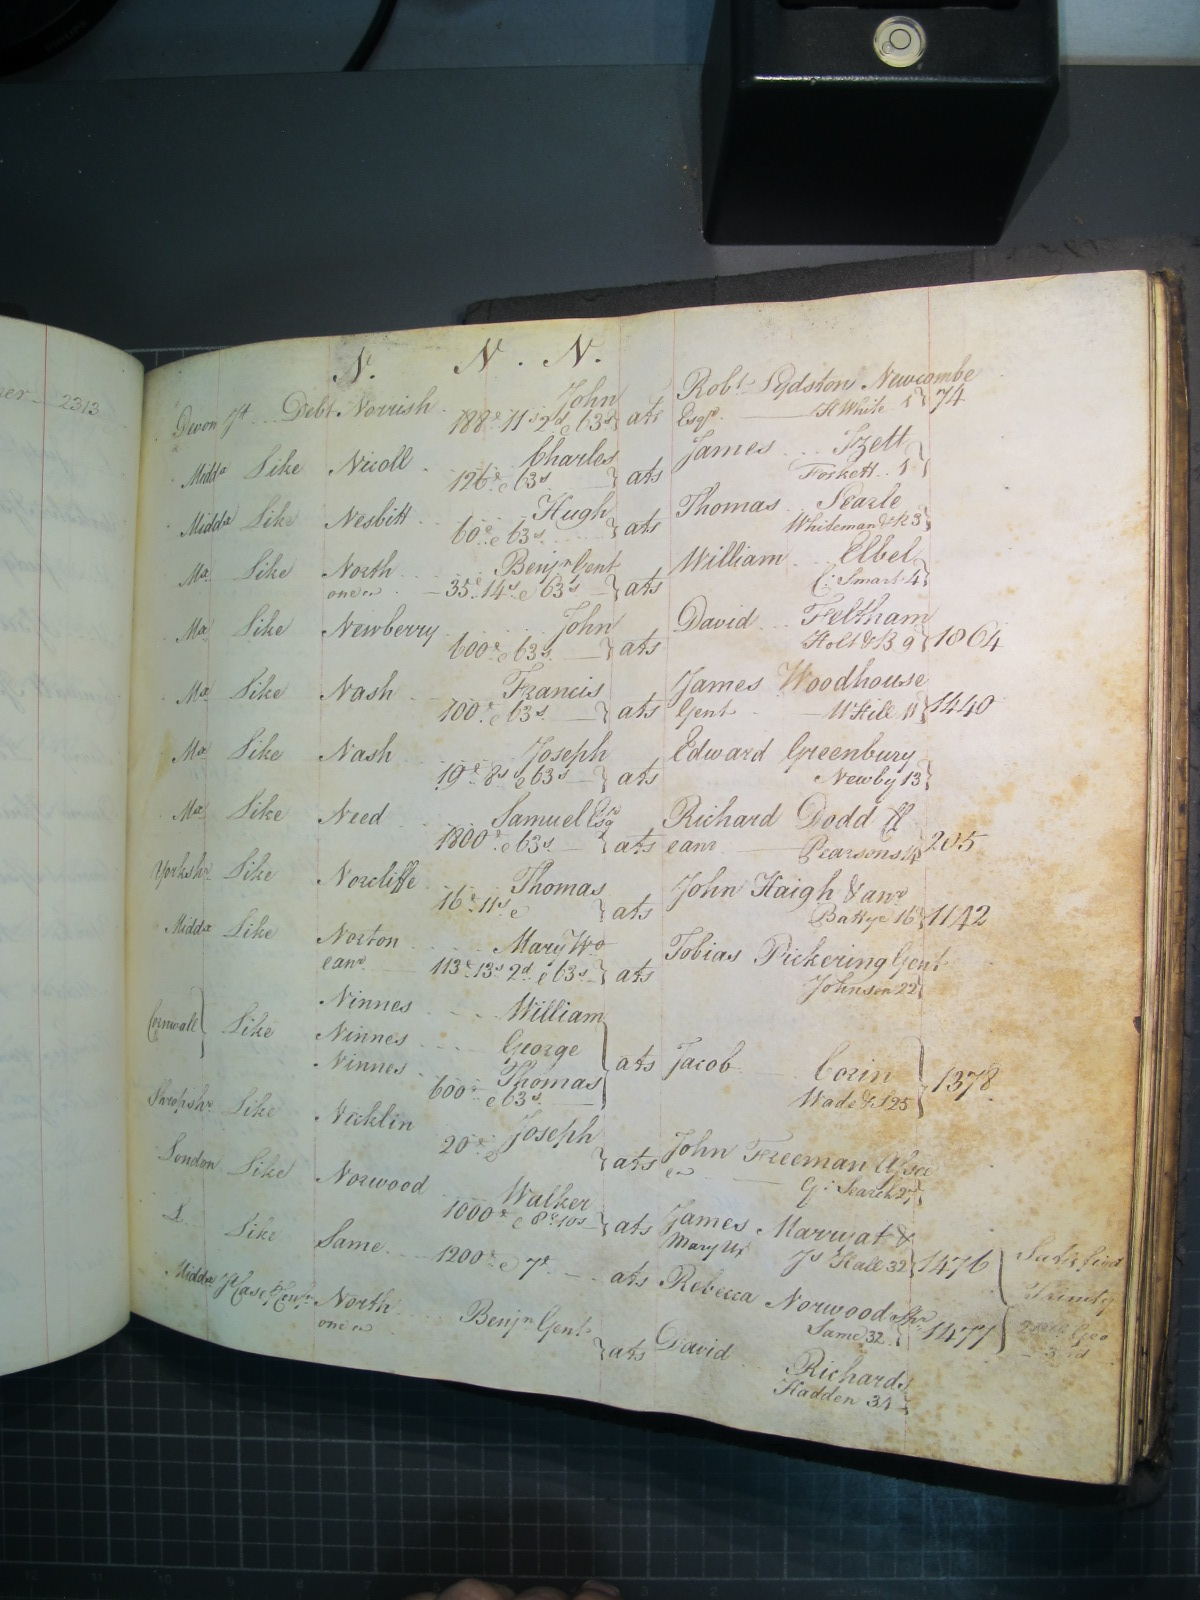 2313
N. N. N.
Devon Jt Debt Norrish John 188£ 11s 2d & 63s } ats Robt Lydston Newcombe Esqr. H White 1 } 74
Middx Like Nicoll Charles 126£ & 63s } ats James Izett Foskett 1 }
Middx Like Nesbitt Hugh 60£ & 63s } ats Thomas Searle Whiteman & 3 }
Mx Like North Benjn Gent one &c 35£ 14s & 63s } ats William Elbel C: Smart 4 }
Mx Like Newberry John 600£ & 63s } ats David Feltham Holt & B 9 } 1864
Mx Like Nash Francis 100£ & 63s } ats James Woodhouse Gent W Hill 11 } 1440
Mx Like Nash Joseph 19£ 8s & 63s } ats Edward Greenbury Newby 13 }
Mx Like Need Samuel Esqr 1800£ & 63s } ats Richard Dodd & anr Pearsons 14 } 205
Yorkshr Like Norcliffe Thomas 16£ 11s & } ats John Haigh & anr Battye 16 } 1142
Middx Like Norton Mary Wo & anr 113£ 13s 2d & 63s } ats Tobias Pickering Gent Johnson 22 }
Cornwall } Like Ninnes William
Ninnes George
Ninnes Thomas 600£ & 63s } ats Jacob Corin Wade & 25 } 1378
Shropshr Like Nicklin Joseph 20£ & } ats John Freeman G: Search 27 }
London Like Norwood Walker 1000£ & 8£ 10s } ats James Marryat & Mary Ux Js Hall 32 } 1476 } Satisfied
L Like Same 1200£ & 7£ ats Rebecca Norwood Same 32 } 1477 } Trinity Geo 3rd
Middx North Benjn Gent one &c } ats David Richards Hadden 34 }